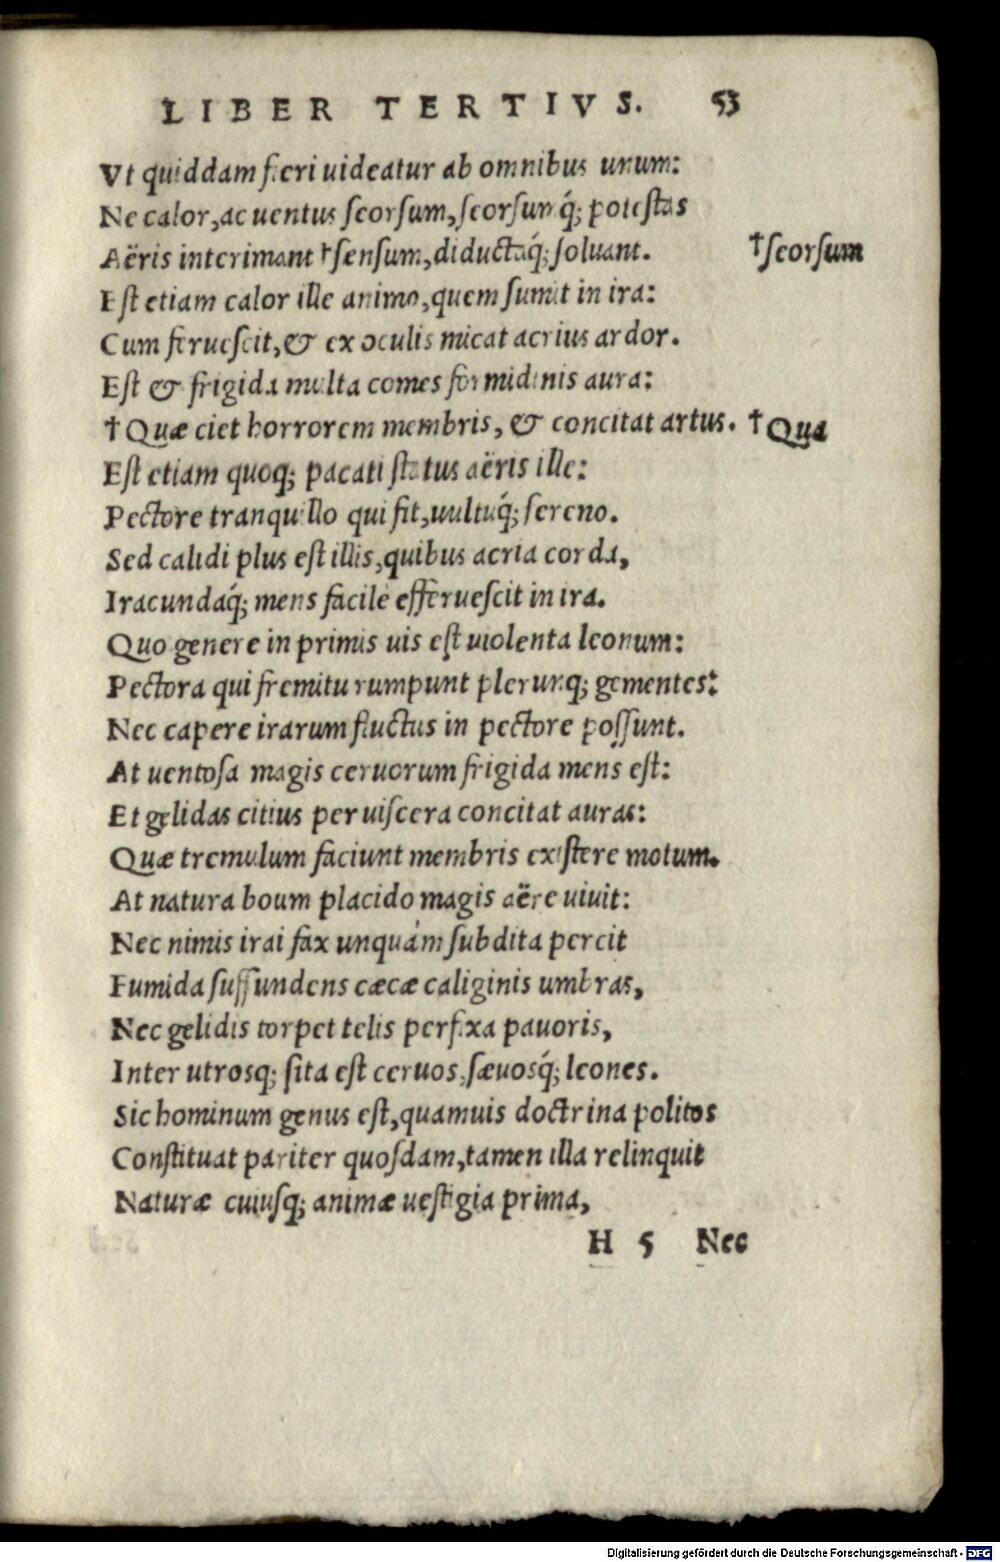 LIBER TERTIVS. 53
Vt quiddam fieri uideatur ab omnibus unum:
Ne calor, ac uentus seorsum, seorsunq́; potestas
Aëris interimant †sensum, diductaq́; soluant. †seorsum
Est etiam calor ille animo, quem sumit in ira:
Cum feruescit, & ex oculis micat acrius ardor.
Est & frigida multa comes formidinis aura:
†Quæ ciet horrorem membris, & concitat artus. †Qua
Est etiam quoq; pacati status aëris ille:
Pectore tranquillo qui fit, uultuq́; sereno.
Sed calidi plus est illis, quibus acria corda,
Iracundaq́; mens facilè efferuescit in ira.
Quo genere in primis uis est uiolenta leonum:
Pectora qui fremitu rumpunt plerunq; gementes:
Nec capere irarum fluctus in pectore possunt.
At uentosa magis ceruorum frigida mens est:
Et gelidas citius per uiscera concitat auras:
Quæ tremulum faciunt membris existere motum.
At natura boum placido magis aëre uiuit:
Nec nimis irai fax unquám subdita percit
Fumida suffundens cæcæ caliginis umbras,
Nec gelidis torpet telis perfixa pauoris,
Inter utrosq; sita est ceruos, sæuosq́; leones.
Sic hominum genus est, quamuis doctrina politos
Constituat pariter quosdam, tamen illa relinquit
Naturæ cuiusq; animæ uestigia prima,
H 5 Nec
Digitalisierung gefördert durch die Deutsche Forschungsgemeinschaft - DFG